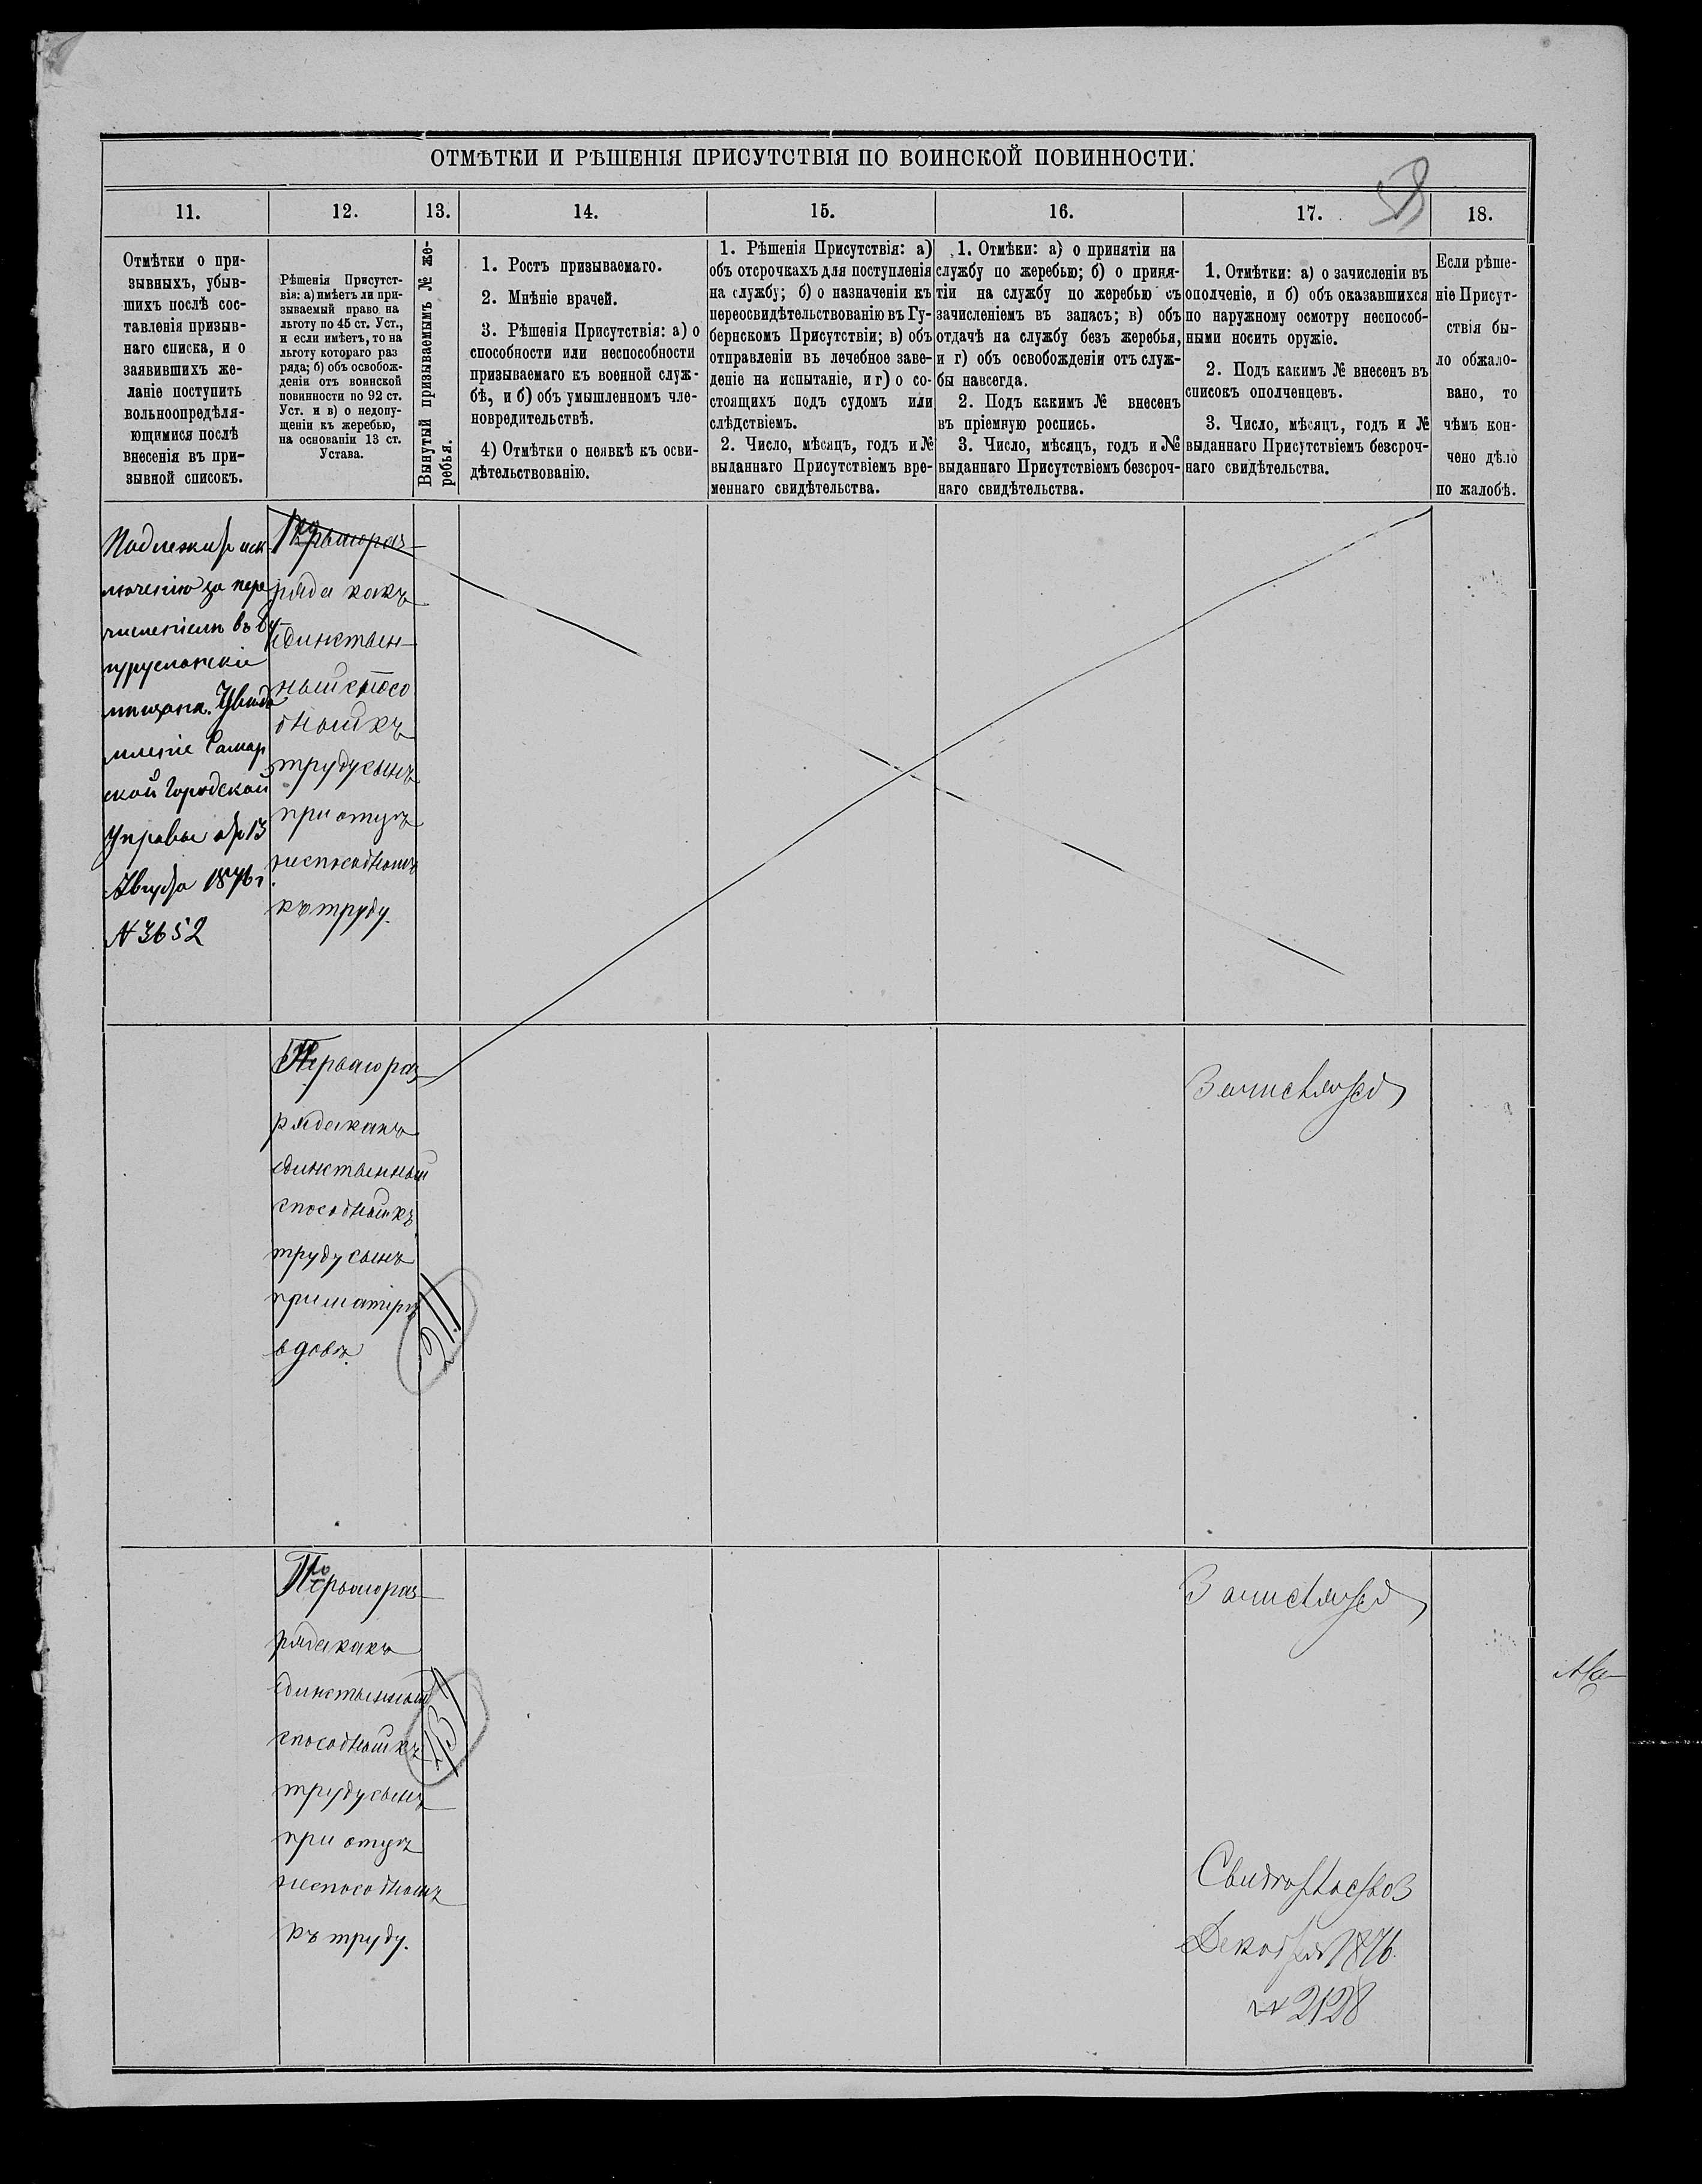 ОТМѢТКИ И РѢШЕНІЯ ПРИСУТСТВІЯ ПО ВОИНСКОЙ ПОВИННОСТИ.
58
11.
12.
13.
14.
15.
16.
17.
18.
Отмѣтки о при-
зывныхъ, убыв-
шихъ послѣ сос-
тавленія призыв-
наго списка, и о
заявившихъ же-
ланіе поступить
вольноопредѣля-
ющимися послѣ
внесенія въ при-
зывной списокъ.
Рѣшенія Присутст-
вія: а) имѣетъ ли при-
зываемый право на
льготу по 45 ст. Уст.,
и если имѣетъ, то на
льготу котораго раз
ряда; б) объ освобож-
деніи отъ воинской
повинности по 92 ст.
Уст. и в) о недопу-
щеніи къ жеребью,
на основаніи 13 ст.
Устава.
Вынутый призываемымъ № же-
ребья.
1. Ростъ призываемаго.
2. Мнѣніе врачей.
3. Рѣшенія Присутствія: а) о
способности или неспособности
призываемаго къ военной служ-
бѣ, и б) объ умышленномъ чле-
новредительствѣ.
4) Отмѣтки о неявкѣ къ осви-
дѣтельствованію.
1. Рѣшенія Присутствія: а)
объ отсрочкахъ для поступленія
на службу; б) о назначеніи къ
переосвидѣтельствованію въ Гу-
бернскомъ Присутствіи; в) объ
отправленіи въ лечебное заве-
деніе на испытаніе, и г) о со-
стоящихъ подъ судомъ или
слѣдствіемъ.
2. Число, мѣсяцъ, годъ и №
выданнаго Присутствіемъ вре-
меннаго свидѣтельства.
1. Отмѣки: а) о принятіи на
службу по жеребью; б) о приня-
тіи на службу по жеребью съ
зачисленіемъ въ запасъ; в) объ
отдачѣ на службу безъ жеребья,
и г) объ освобожденіи отъ служ-
бы навсегда.
2. Подъ какимъ № внесенъ
въ пріемную роспись.
3. Число, мѣсяцъ, годъ и №
выданнаго Присутствіемъ безсроч-
наго свидѣтельства.
1. Отмѣтки: а) о зачисленіи въ
ополченіе, и б) объ оказавшихся
по наружному осмотру неспособ-
ными носить оружіе.
2. Подъ какимъ № внесенъ въ
списокъ ополченцевъ.
3. Число, мѣсяцъ, годъ и №
выданнаго Присутствіемъ безсроч-
наго свидѣтельства.
Если рѣше-
ніе Присут-
ствія бы-
ло обжало-
вано, то
чѣмъ кон-
чено дѣло
по жалобѣ.
Подлежитъ иск
лючению за пере
численіемъ въ Бу
гурусланскіе
мещане. Увѣдо
мленіе Самар
ской Городской
Управы отъ 13
Августа 1876 г
№ 3652
Перваго раз-
ряда какъ
единствен-
ный спосо
бный къ
труду сынъ
при отцѣ
неспособномъ
къ труду.
Перваго раз-
ряда какъ
единственный
способный къ
труду сынъ
при матери
вдовѣ.
211
Зачисляется
Перваго раз-
ряда какъ
единственный
способный къ
труду сынъ
при отцѣ
неспособномъ
къ труду.
Зачисляется
Свидѣтельство 3
Декабря 1876
№ 2128